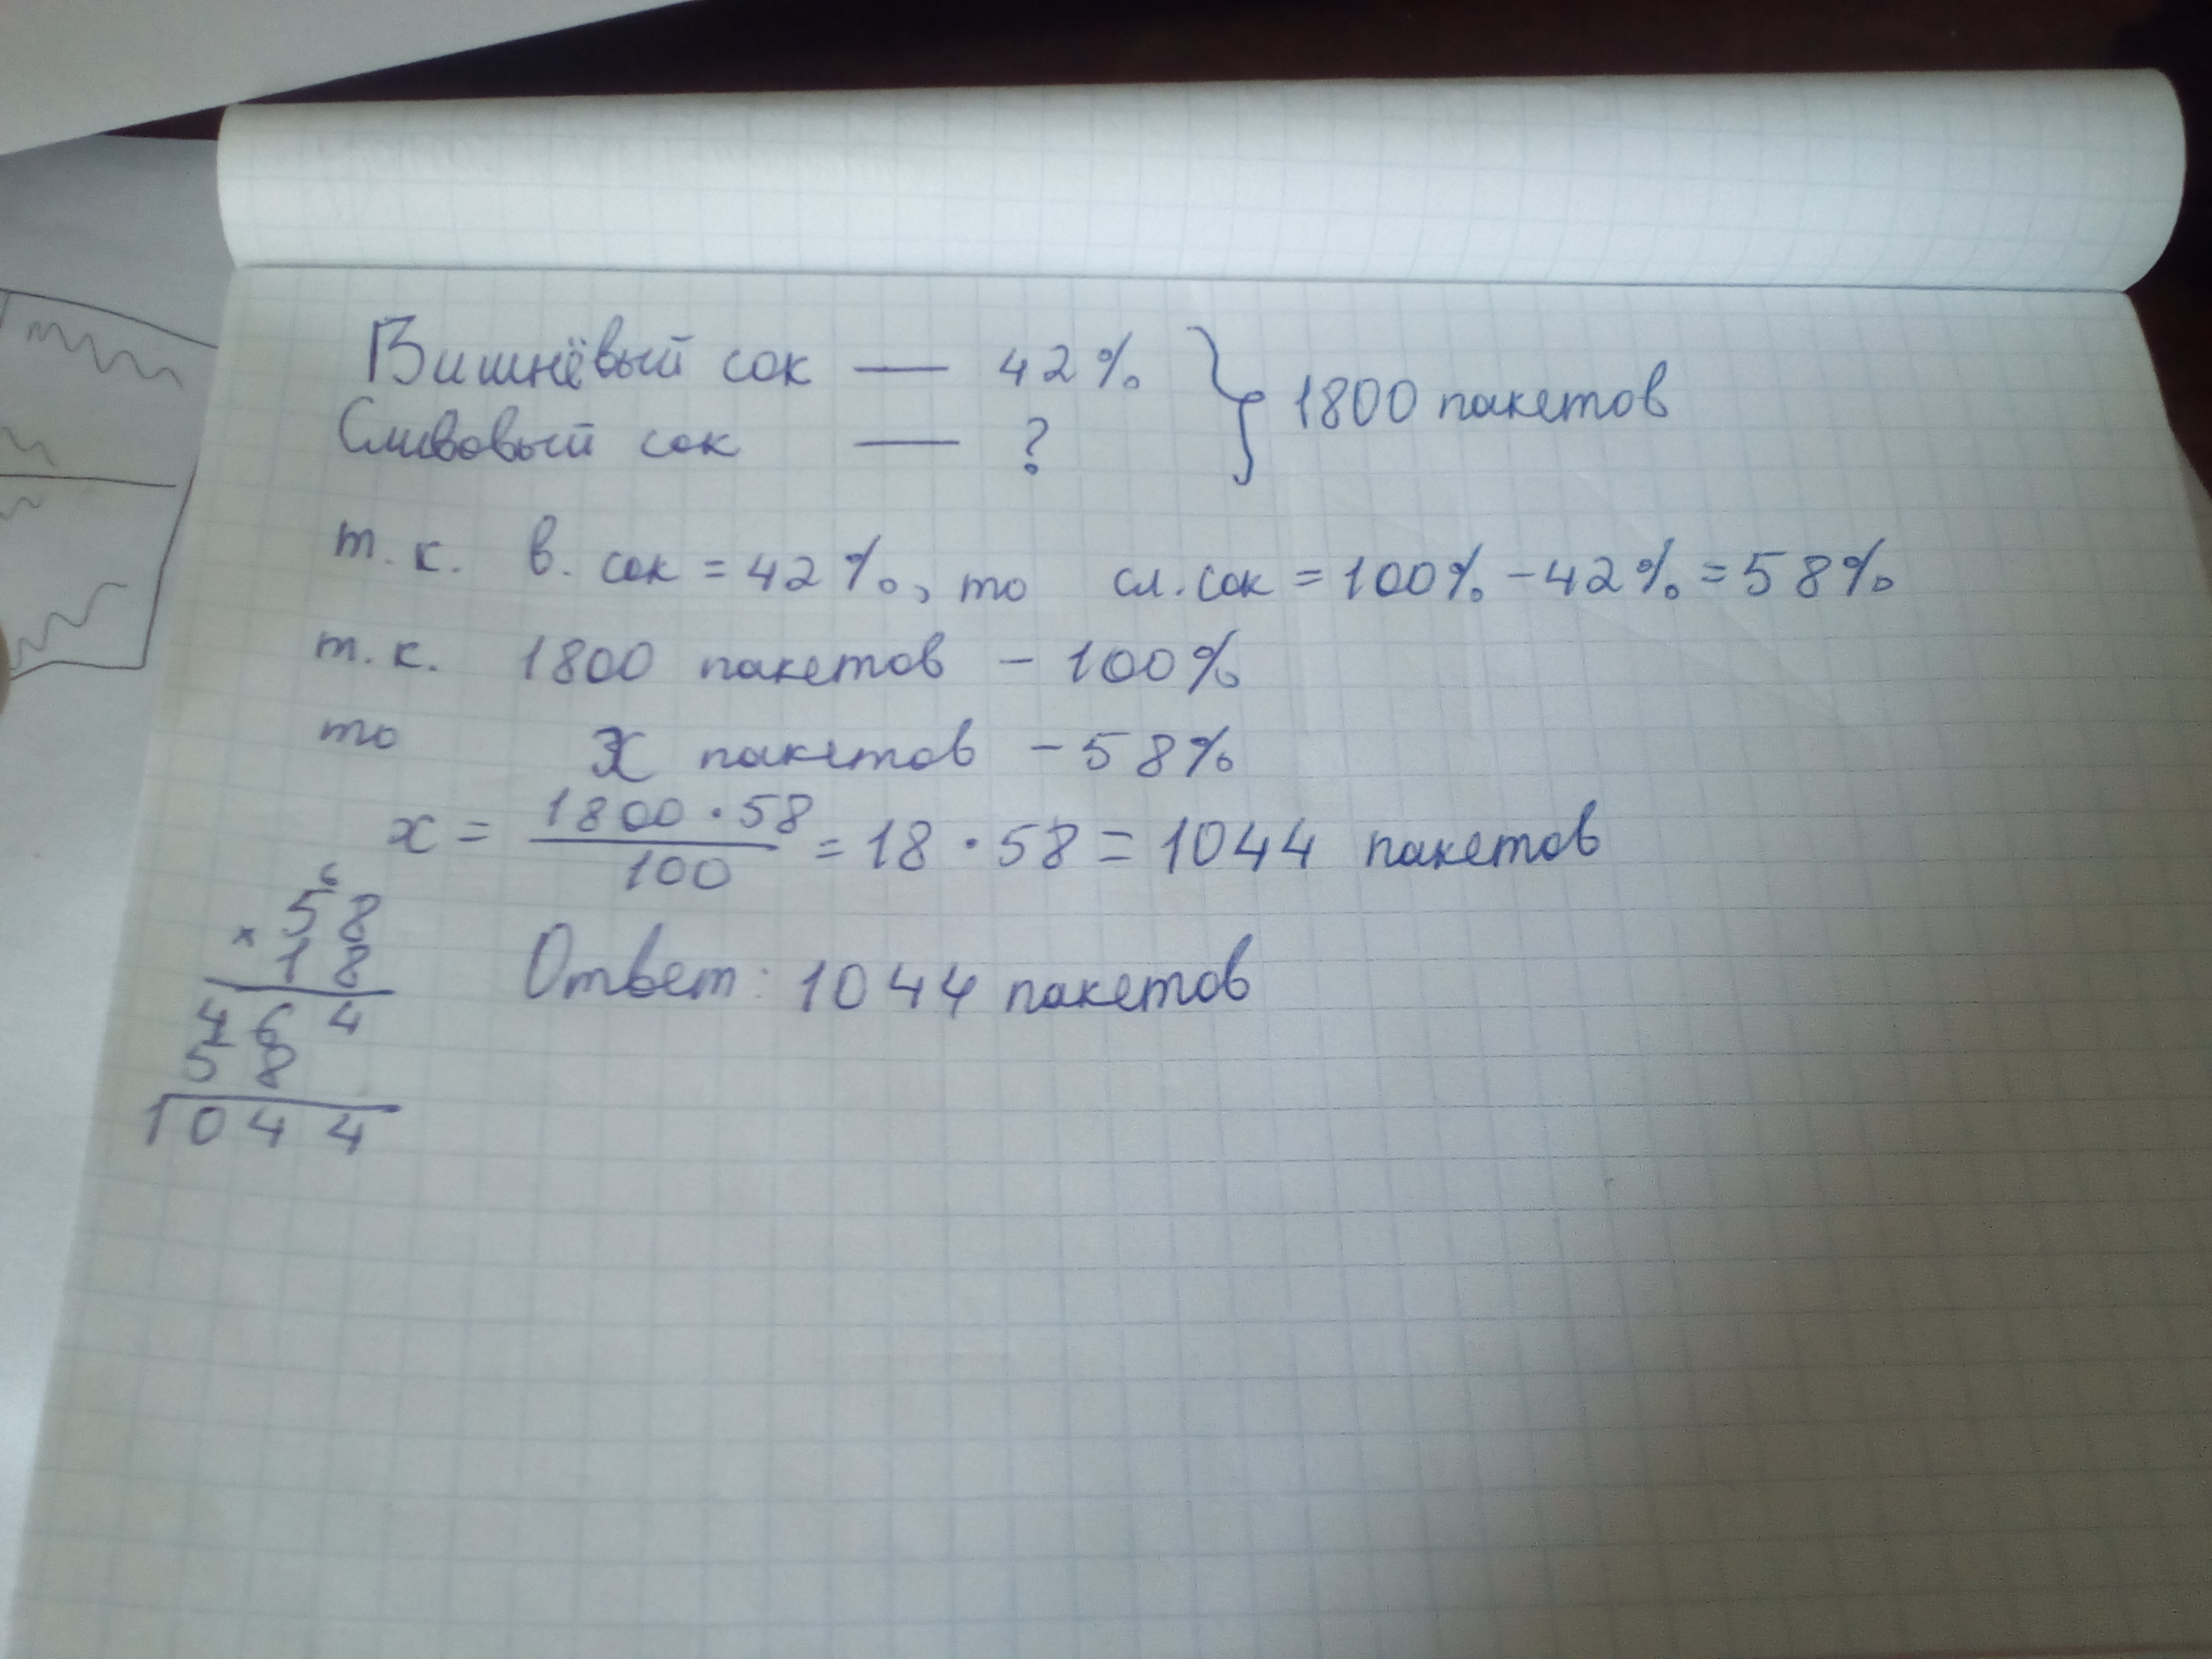 Вишнёвый сок — 42% } 1800 пакетов
Сливовый сок — ?
т.к. в. сок = 42%, то сл. сок = 100% - 42% = 58%
т.к. 1800 пакетов - 100%
то x пакетов - 58%
x = 1800 · 58 / 100 = 18 · 58 = 1044 пакетов
6
58
× 18
464
58
1044
Ответ: 1044 пакетов